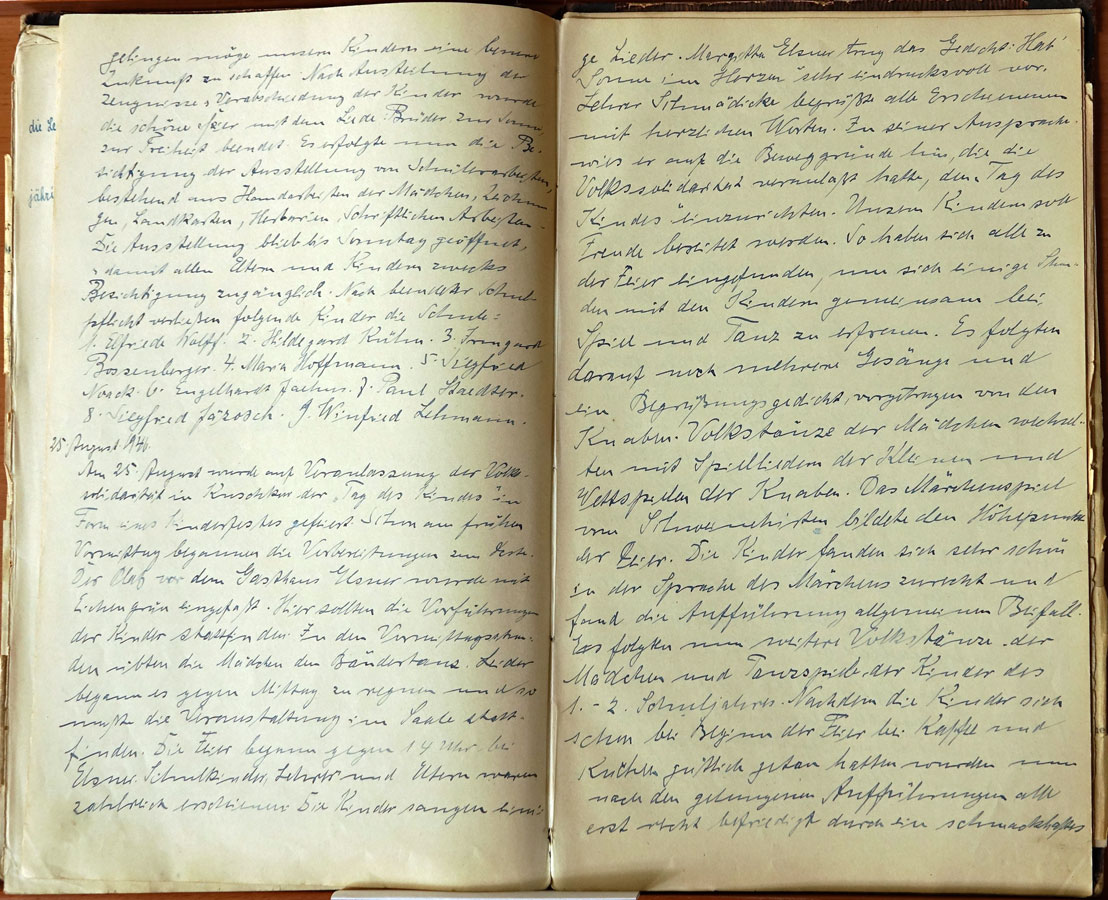 die Le
jähri
gelingen möge unsern Kindern eine bessere
Zukunft zu schaffen. Nach Austeilung der
Zeugnisse u. Verabschiedung der Kinder wurde
die schöne Feier mit dem Liede Brüder zur Sonne,
zur Freiheit beendet. Es erfolgte nun die Be-
sichtigung der Ausstellung von Schülerarbeiten,
bestehend aus Handarbeiten der Mädchen, Zeichnun-
gen, Landkarten, Herbarien, Schriftlichen Arbeiten.
Die Ausstellung blieb bis Sonntag geöffnet,
damit allen Eltern und Kindern zwecks
Besichtigung zugänglich. Nach beendeter Schul-
pflicht verließen folgende Kinder die Schule:
1. Elfriede Wolff. 2. Hildegard Kühn. 3. Irmgard
Bossenberger. 4. Maria Hoffmann. 5. Siegfried
Noack. 6. Engelhardt Jachns. 7. Paul Staedter.
8. Siegfried Järosch. 9. Winfried Lehmann.
25. August 1946.
Am 25. August wurde auf Veranlassung der Volks-
solidarität in Kuschkow der „Tag des Kindes" in
Form eines Kinderfestes gefeiert. Schon am frühen
Vormittag begannen die Vorbereitungen zum Fest.
Der Platz vor dem Gasthaus Elsner wurde mit
Eichengrün eingefaßt. Hier sollten die Vorführungen
der Kinder stattfinden. In den Vormittagsstun-
den übten die Mädchen den Bändertanz. Leider
begann es gegen Mittag zu regnen und so
mußte die Veranstaltung im Saale statt-
finden. Die Feier begann gegen 14 Uhr bei
Elsner. Schulkinder, Lehrer und Eltern waren
zahlreich erschienen. Die Kinder sangen eini-
ge Lieder. Margitta Elsner trug das Gedicht: Hab'
Sonne im Herzen" sehr eindrucksvoll vor.
Lehrer Schmädicke begrüßte alle Erschienenen
mit herzlichen Worten. In seiner Ansprache
wies er auf die Beweggründe hin, die die
Volkssolidarität veranlaßt hatte, den „Tag des
Kindes" einzurichten. Unsern Kindern soll
Freude bereitet werden. So haben sich alle zu
der Feier eingefunden, um sich einige Stun-
den mit den Kindern gemeinsam bei
Spiel und Tanz zu erfreuen. Es folgten
darauf noch mehrere Gesänge und
ein Begrüßungsgedicht, vorgetragen von den
Knaben. Volkstänze der Mädchen wechsel-
ten mit Spielliedern der Kleinen und
Wettspielen der Knaben. Das Märchenspiel
vom Schneewittchen bildete den Höhepunkt
der Feier. Die Kinder fanden sich sehr schön
in der Sprache des Märchens zurecht und
fand die Aufführung allgemeinen Beifall.
Es folgten nun weitere Volkstänze der
Mädchen und Tanzspiele der Kinder des
1. - 2. Schuljahres. Nachdem die Kinder sich
schon bei Beginn der Feier bei Kaffee und
Kuchen gütlich getan hatten wurden nun
nach den gelungenen Aufführungen alle
erst recht befriedigt durch ein schmackhaftes